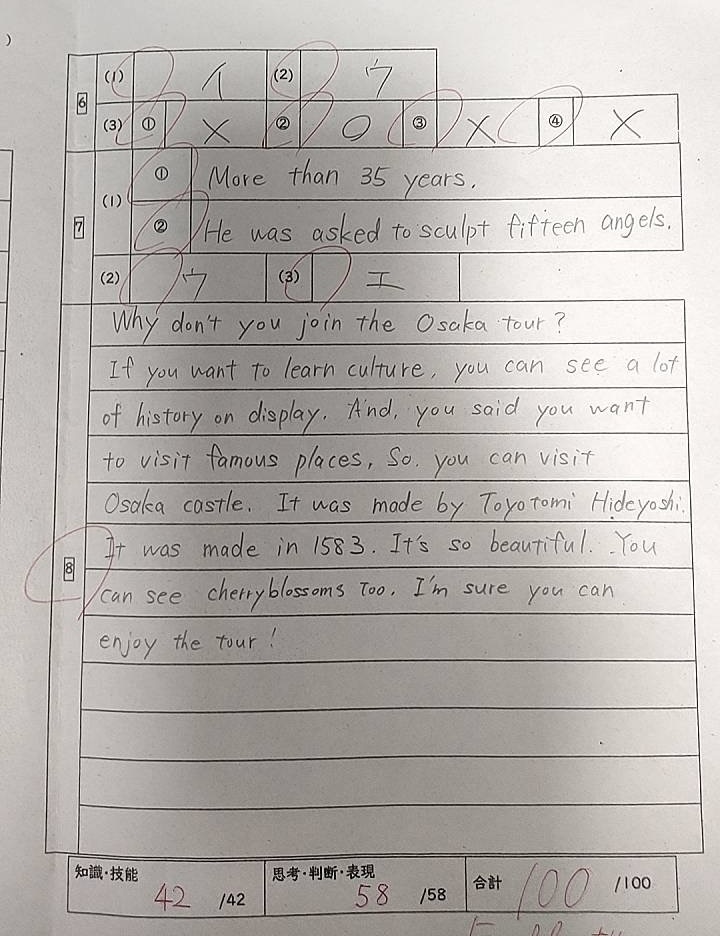 )
6 (1) イ (2) ウ
(3) ① × ② ○ ③ × ④ ×
7 (1) ① More than 35 years.
② He was asked to sculpt fifteen angels.
(2) ウ (3) エ
8
Why don't you join the Osaka tour?
If you want to learn culture, you can see a lot
of history on display. And, you said you want
to visit famous places, So, you can visit
Osaka castle. It was made by Toyotomi Hideyoshi.
It was made in 1583. It's so beautiful. You
can see cherryblossoms too. I'm sure you can
enjoy the tour!
知識・技能 42 /42 思考・判断・表現 58 /58 合計 100 /100